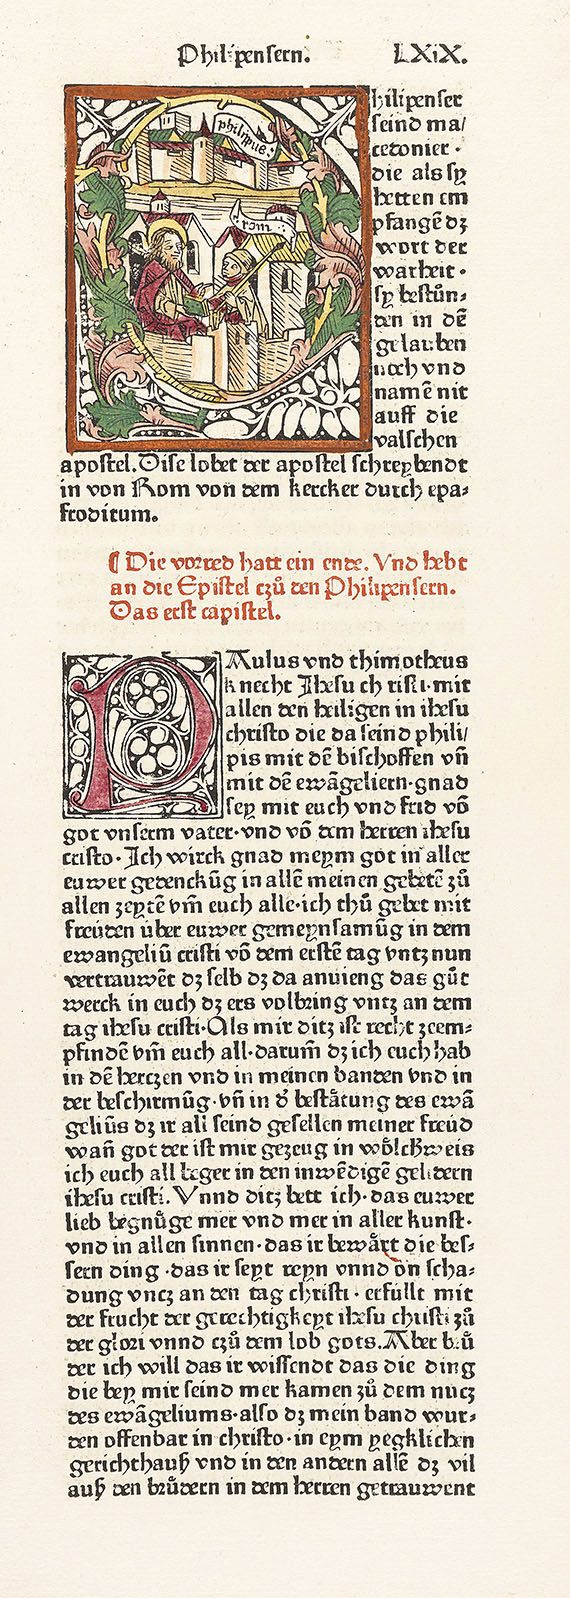 Philipensern. LXiX.
philipus
rom
hilipenser
seind ma/
cedonier ·
die als sy
hetten em
pfangē dz
wort der
warheit ·
sy bestůn⸗
den in dē
gelauben
noch vnd
namē nit
auff die
valschen
apostel. Dise lobet der apostel schreybendt
in von Rom von dem kercker durch epa⸗
froditum.
¶ Die vorred hatt ein ende. Vnd hebt
an die Epistel czů den Philipensern.
Das erst capistel.
PAulus vnd thimotheus
knecht Jhesu ch risti · mit
allen den heiligen in ihesu
christo die da seind phili/
pis mit dē bischoffen vn̄
mit dē ewāgeliern · gnad
sey mit euch vnd frid vō
got vnserm vater · vnd vō dem herren ihesu
cristo · Ich wirck gnad meym got in aller
euwer gedenckūg in allē meinen gebetē zů
allen zeytē vm̄ euch alle · ich thů gebet mit
freüden über euwer gemeynsamūg in dem
ewangeliū cristi vō dem erstē tag vntz nun
vertrauwēt dz selb dz da anuieng das gůt
werck in euch dz ers volbring vntz an dem
tag ihesu cristi · Als mir ditz ist recht zeem⸗
pfindē vm̄ euch all · darum̄ dz ich euch hab
in dē herczen vnd in meinen banden vnd in
der beschirmūg · vn̄ in d' bestätung des ewā
geliūs dz ir all seind gesellen meiner freüd
wan̄ got der ist mir gezeug in wölchweis
ich euch all beger in den inwēdigē gelidern
ihesu cristi. Vnnd ditz bett ich · das euwer
lieb begnüge mer vnd mer in aller kunst ·
vnd in allen sinnen · das ir bewärt die bes⸗
sern ding · das ir seyt reyn vnnd on scha⸗
dung vncz an den tag christi · erfüllt mit
der frucht der gerechtigkeyt ihesu christi zů
der glori vnnd czů dem lob gots. Aber brů
der ich will das ir wissendt das die ding
die bey mir seind mer kamen zů dem nucz
des ewāgeliums · also dz mein band wur⸗
den offenbar in christo · in eym yegklichen
gerichthauß vnd in den andern allē dz vil
auß den brüdern in dem herren getrauwent